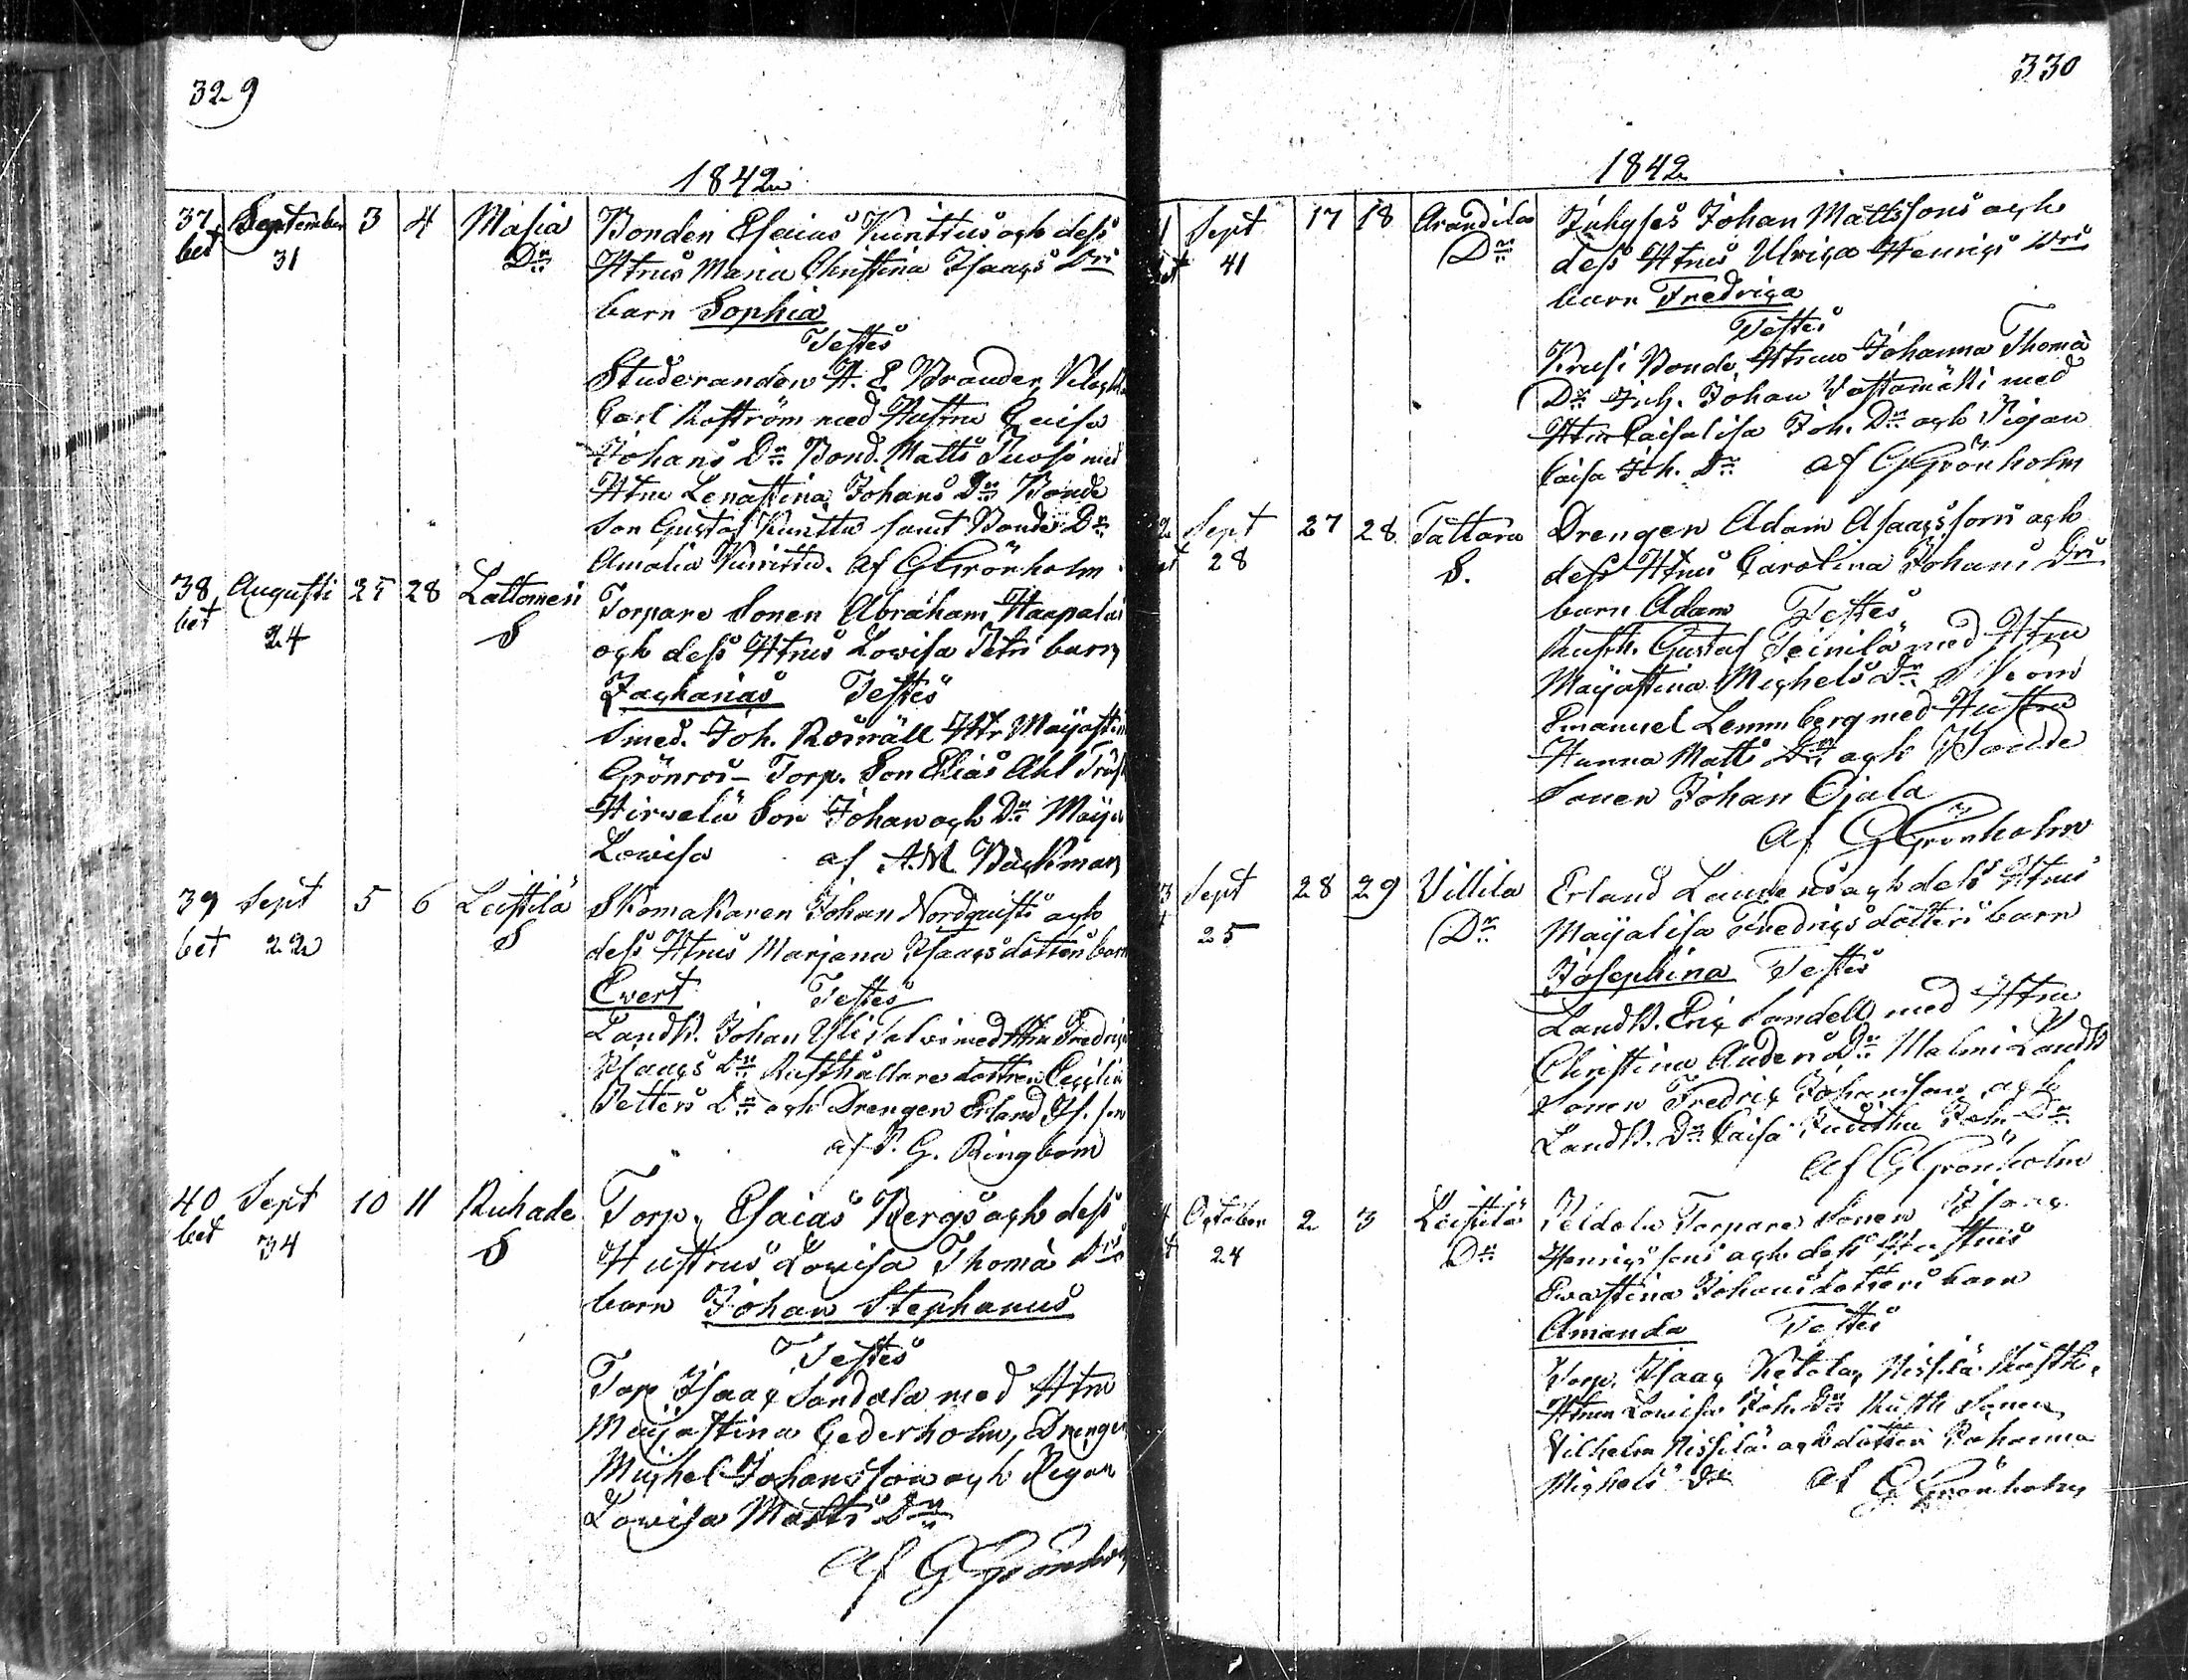 329
1842
37 September 3 4 Masia Bonden Esaias Kunttus och dess
bet 31 Dr Htrus Maria Christina Isaacs Drs
barn Sophia
Testes
Studeranden H. E. Brander,
Carl Roström med Hustru Caisa
Johans Dr Bond. Matts med
Htru Lenastina Johans Dr Bonde
Son Gustaf Kunttu samt Bonde Dr
Amalia Kunttu. af G Grönholm
38 Augusti 25 28 Lattomeri Torpare Sonen Abraham Haapalas
bet 24 S och dess Htrus Lovisa Petri barn
Zacharias Testes
Smed. Joh. Rosnäll Htr Maijastina
Grönroos Torp. Son Elias Ahl
Hirvelä Son Johan och Dr Maija
Lowisa af A.M. Backman
39 Sept 5 6 Leistilä Skomakaren Johan Nordquists och
bet 22 S dess Htrus Marjana Isaacs dotters barn
Evert Testes
Landb. Johan med Htru Fredrica
Isaacs Dr Rusthållare dottren Cecilia
Petters Dr och Drengen Erland Is. son
af P. G. Ringbom
40 Sept 10 11 Ruhade Torp. Esaias Bergs och dess
bet 34 S Hustrus Lowisa Thomæ Drs
barn Johan Stephanus
Testes
Torp Isaac Sandala med Htru
Majastina Cederholm, Drengen
Michel Johansson och Pigan
Lowisa Matts Dr
af G Grönholm
330
1842
Sept 17 18 Arandila Inhyses Johan Mattssons och
41 Dr dess Htrus Ulrica Henrics Drs
barn Fredrica
Testes
Krusi Bonde Htrun Johanna Thomæ
Dr Inh. Johan Vastamäki med
Htru Caisalisa Joh. Dr och Pigan
Caisa Joh. Dr af G Grönholm
Sept 27 28 Tattara Drengen Adam Isaacssons och
28 S. dess Htrus Carolina Johans Drs
barn Adam Testes
Rusth. Gustaf Seinilä med Htru
Maijastina Michels Dr
Emanuel Lemmberg med Hustru
Hanna Matts Dr och Bonde
Sonen Johan Ojala
af G Grönholm
Sept 28 29 Villila Erland Laurens och dess Htrus
25 Dr Maijalisa Fredrics dotters barn
Josephina Testes
Landb. Eric Sandell med Htru
Christina Anders Dr Malmi Landb
Sonen Fredric Johansson och
Landb. Dr Caisa Joh. Dr
af G Grönholm
October 2 3 Leistilä Peldola Torpare Sonen Isaac
24 Dr Henricssons och dess Hustrus
Evastina Johansdotters barn
Amanda Testes
Torp. Isaac Ketola, Nissilä Rusth.
Htrun Lowisa Joh. Dr Rusth Sonen
Vilhelm Nissilä och dottren Johanna
Michels Dr af G Grönholm